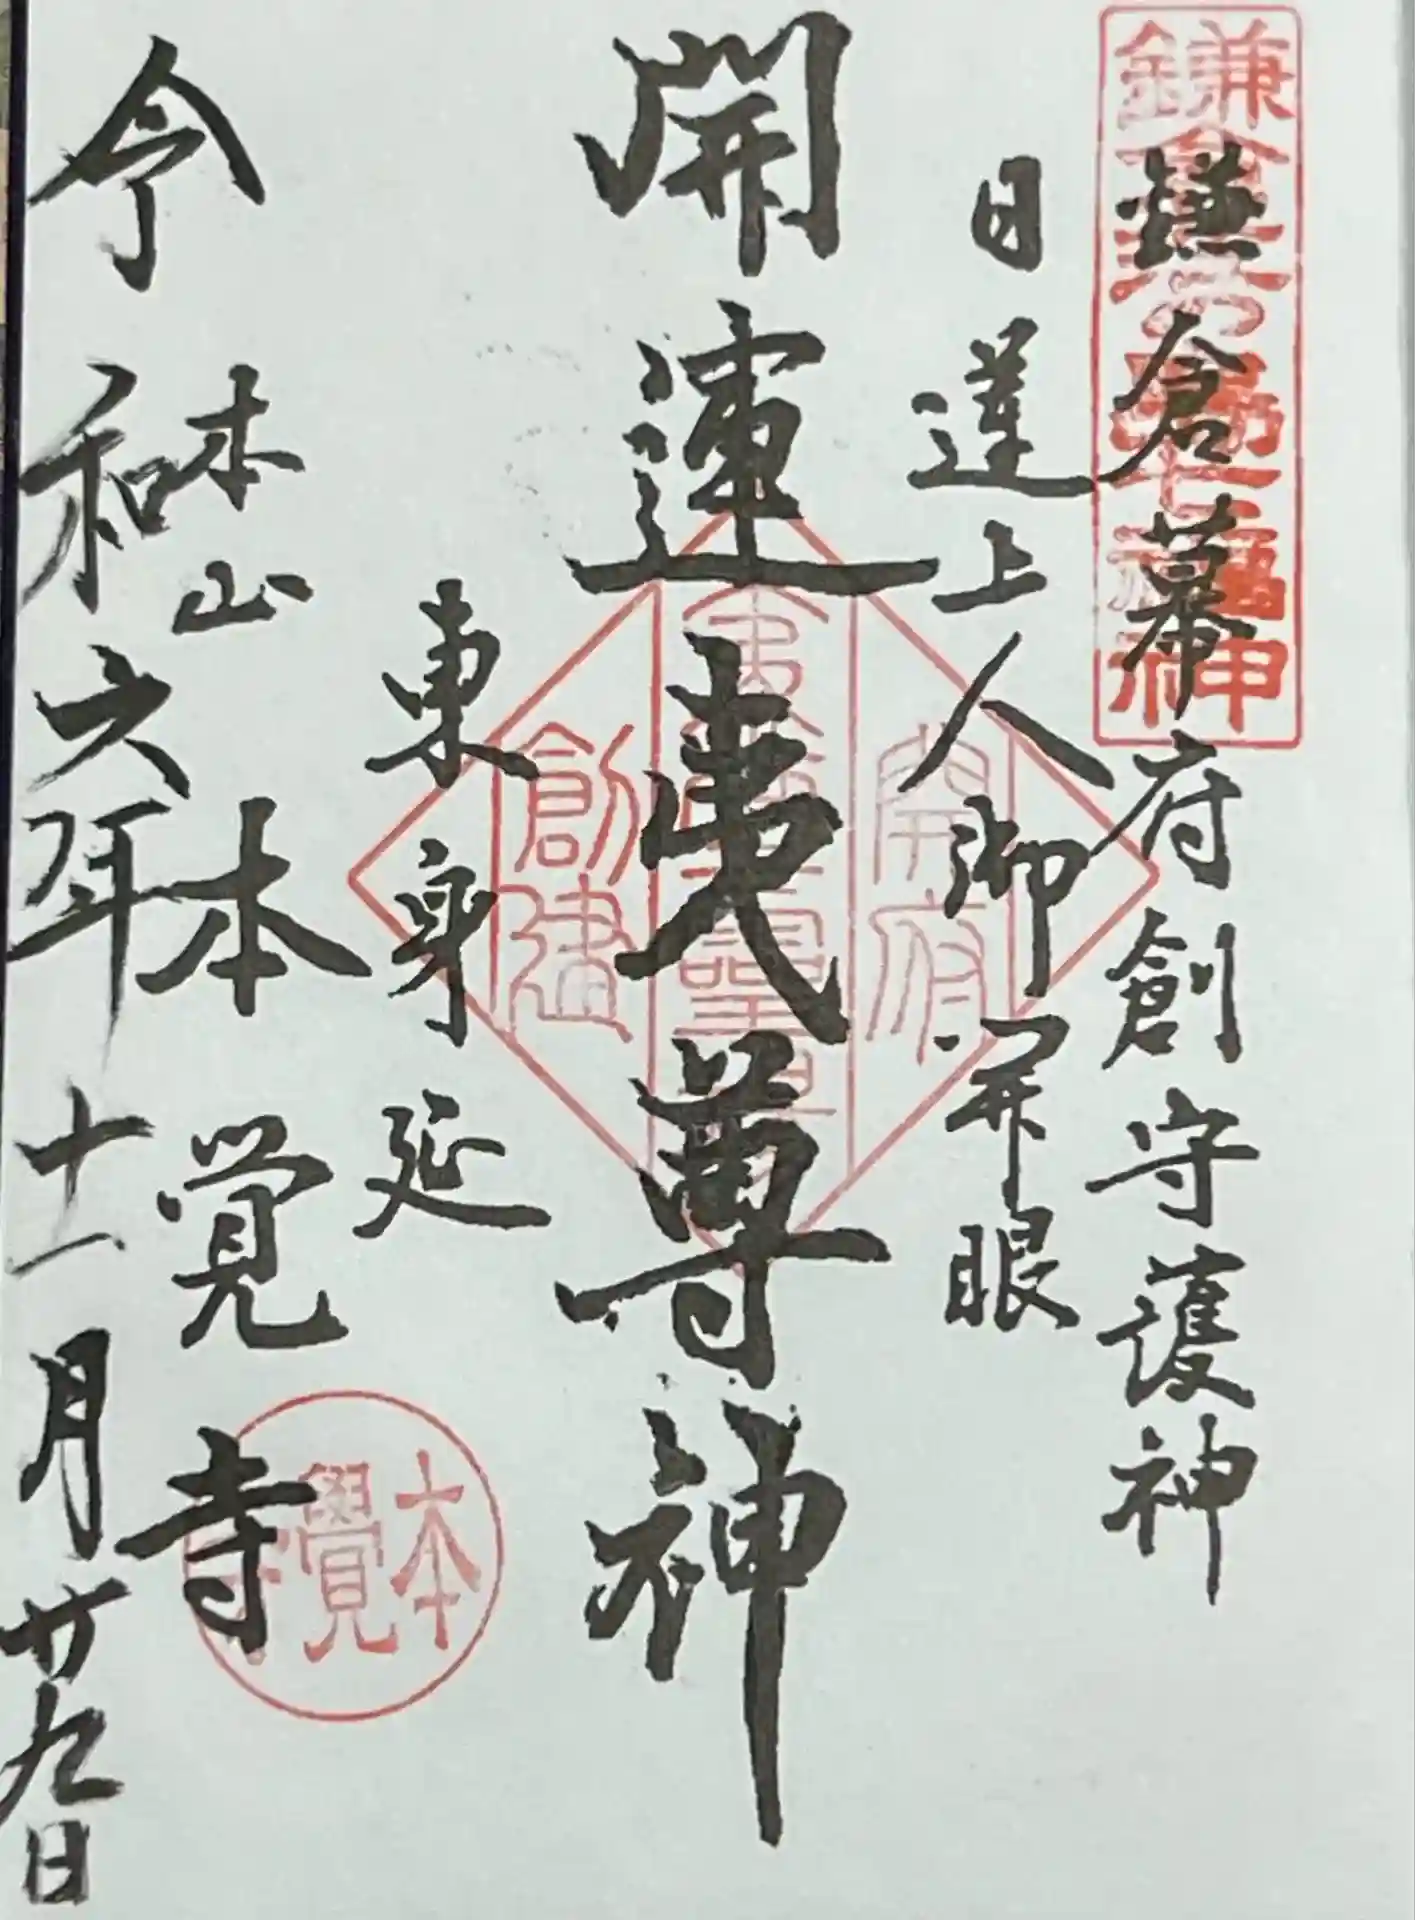 鎌倉幕府創守護神
日蓮上人御開眼
開運夷尊神
東身延
本山 本覚寺
令和六年十一月廿九日
鎌倉江の島七福神
開府
創建
本覺寺